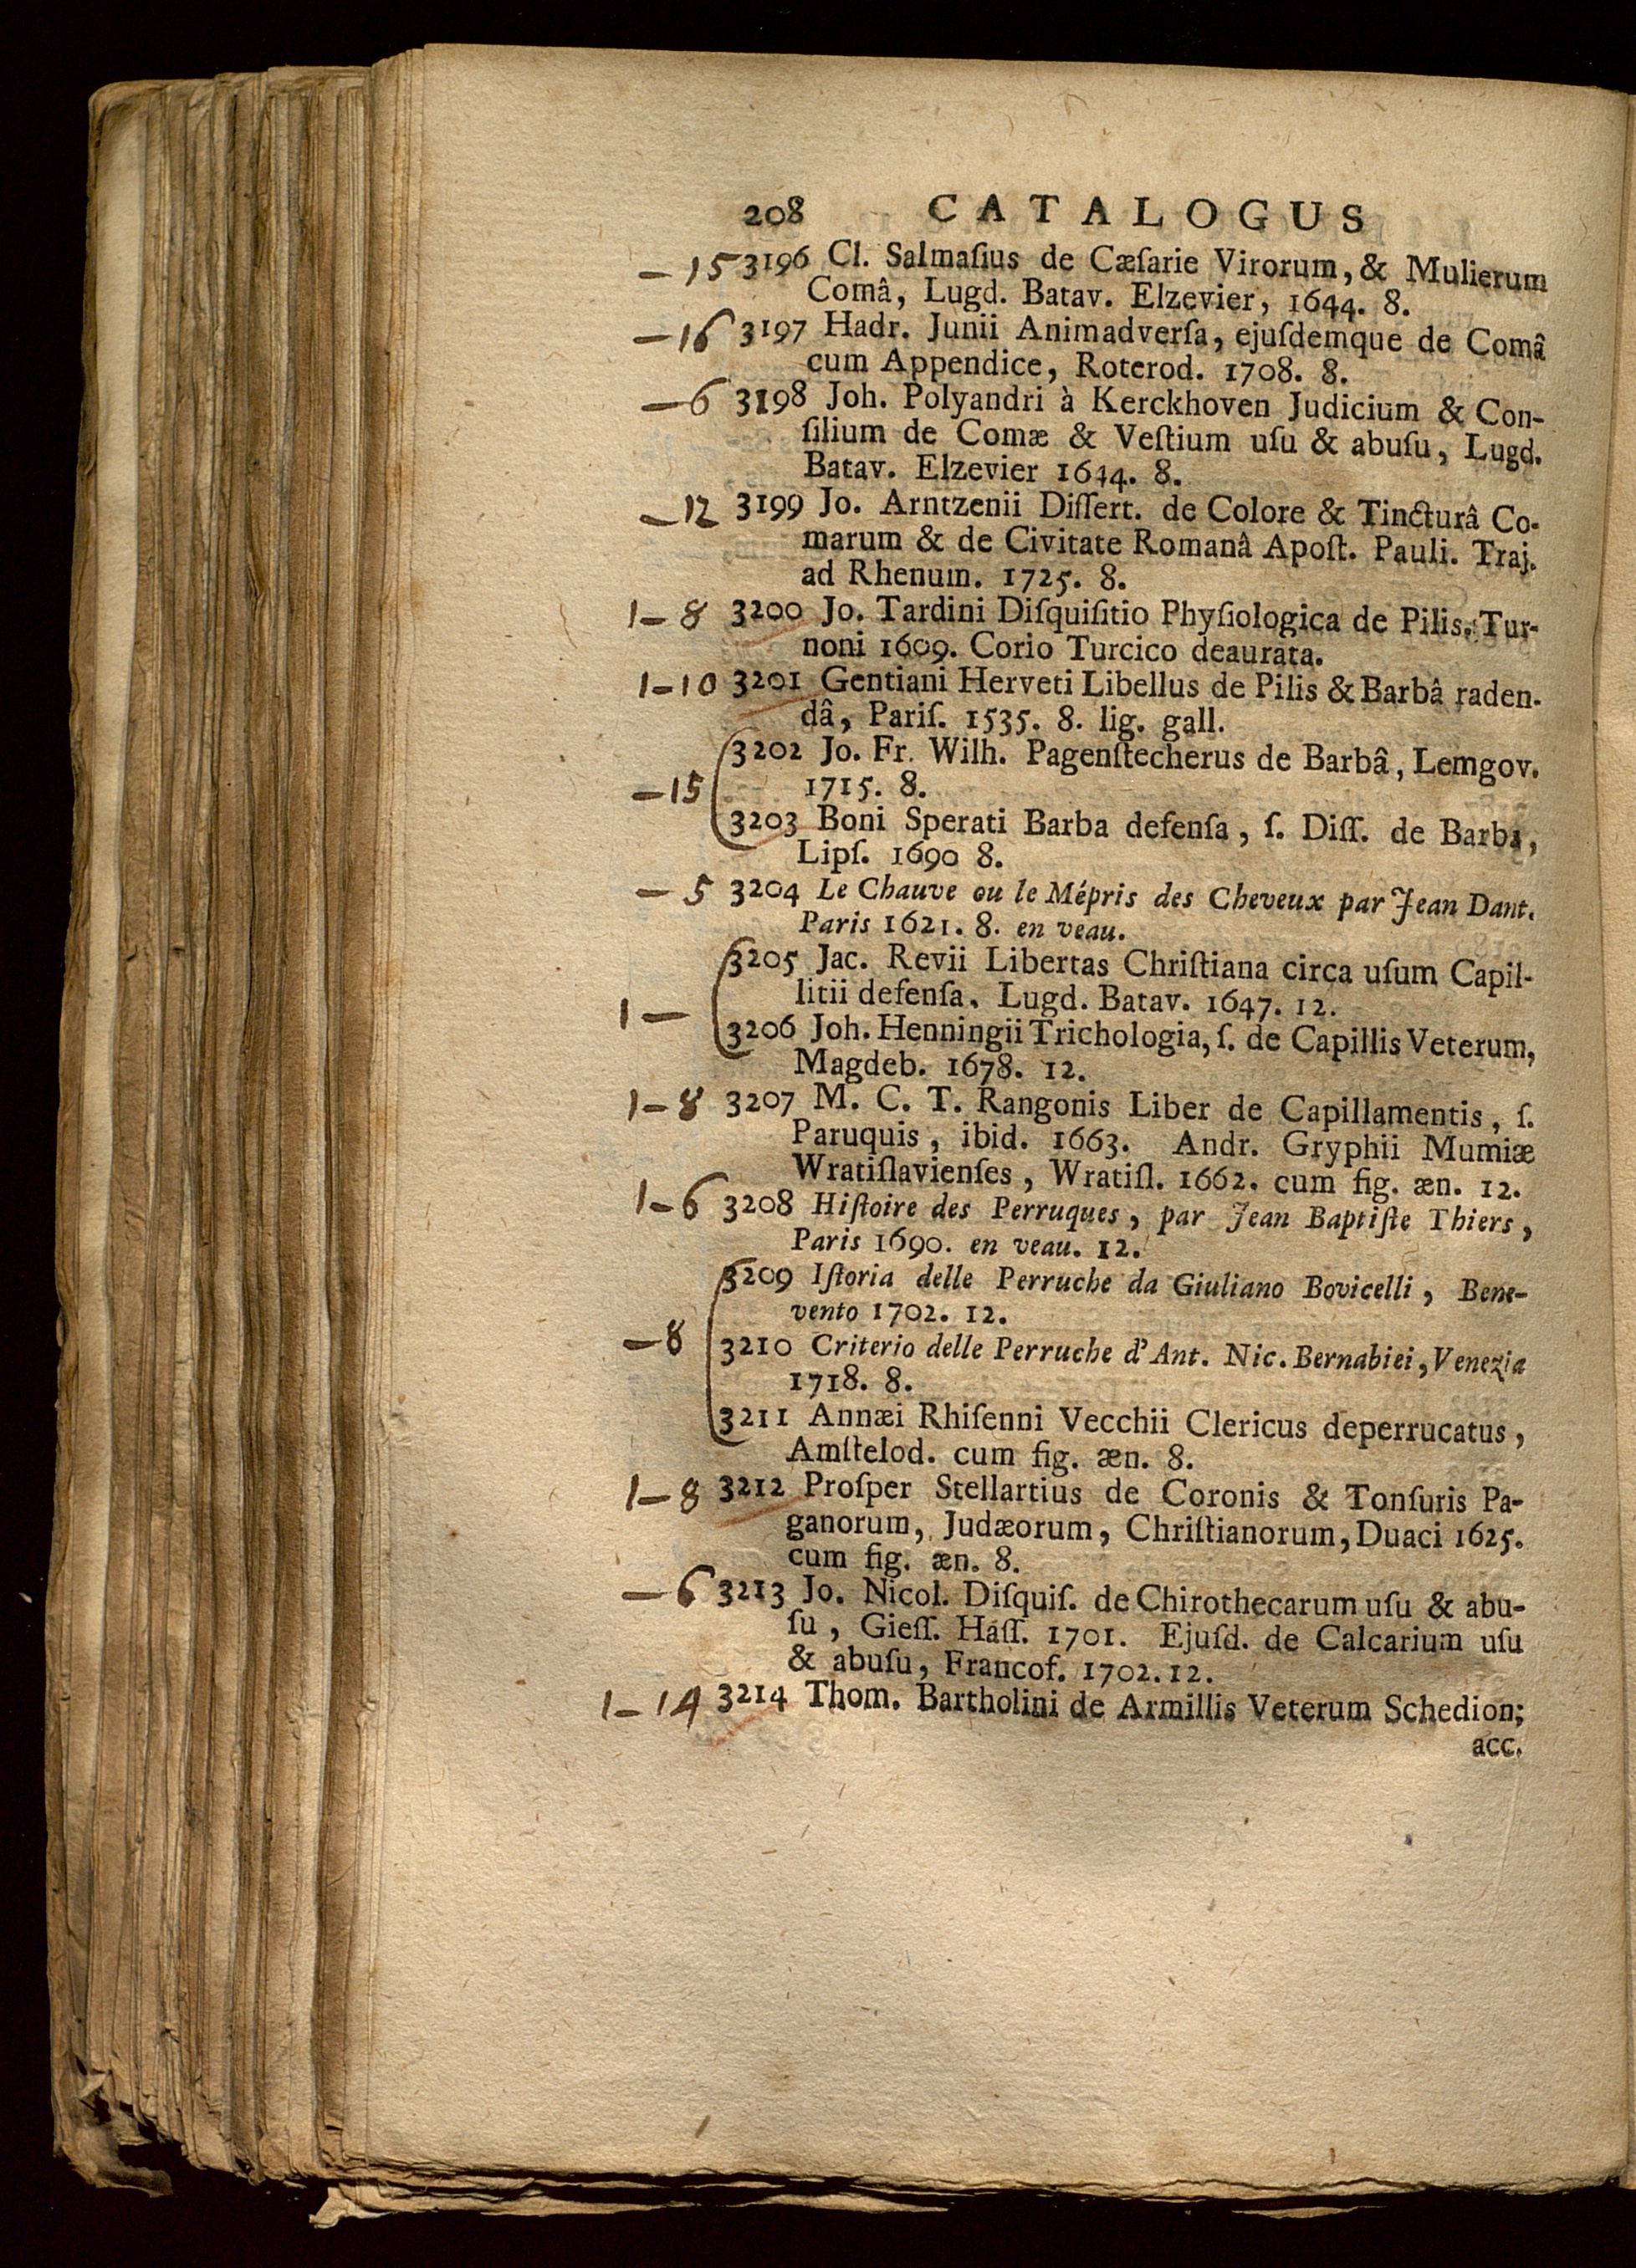 208 CATALOGUS
—15 3196 Cl. Salmaſius de Cæſarie Virorum, & Mulierum
Comâ, Lugd. Batav. Elzevier, 1644. 8.
—16 3197 Hadr. Junii Animadverſa, ejuſdemque de Comâ
cum Appendice, Roterod. 1708. 8.
—6 3198 Joh. Polyandri à Kerckhoven Judicium & Con-
ſilium de Comæ & Veſtium uſu & abuſu, Lugd.
Batav. Elzevier 1644. 8.
—12 3199 Jo. Arntzenii Diſſert. de Colore & Tincturâ Co-
marum & de Civitate Romanâ Apoſt. Pauli. Traj.
ad Rhenum. 1725. 8.
1—8 3200 Jo. Tardini Diſquiſitio Phyſiologica de Pilis, Tur-
noni 1609. Corio Turcico deaurata.
1—10 3201 Gentiani Herveti Libellus de Pilis & Barbâ raden-
dâ, Pariſ. 1535. 8. lig. gall.
3202 Jo. Fr. Wilh. Pagenſtecherus de Barbâ, Lemgov.
—15 1715. 8.
3203 Boni Sperati Barba defenſa, ſ. Diſſ. de Barba,
Lipſ. 1690 8.
—5 3204 Le Chauve ou le Mépris des Cheveux par Jean Dant.
Paris 1621. 8. en veau.
3205 Jac. Revii Libertas Chriſtiana circa uſum Capil-
litii defenſa. Lugd. Batav. 1647. 12.
1—
3206 Joh. Henningii Trichologia, ſ. de Capillis Veterum,
Magdeb. 1678. 12.
1—8 3207 M. C. T. Rangonis Liber de Capillamentis, ſ.
Paruquis, ibid. 1663. Andr. Gryphii Mumiæ
Wratiſlavienſes, Wratiſl. 1662. cum fig. æn. 12.
1—6 3208 Hiſtoire des Perruques, par Jean Baptiſte Thiers,
Paris 1690. en veau. 12.
3209 Iſtoria delle Perruche da Giuliano Bovicelli, Bene-
vento 1702. 12.
—8 3210 Criterio delle Perruche d'Ant. Nic. Bernabiei, Venezia
1718. 8.
3211 Annæi Rhiſenni Vecchii Clericus deperrucatus,
Amſtelod. cum fig. æn. 8.
1—8 3212 Proſper Stellartius de Coronis & Tonſuris Pa-
ganorum, Judæorum, Chriſtianorum, Duaci 1625.
cum fig. æn. 8.
—6 3213 Jo. Nicol. Diſquiſ. de Chirothecarum uſu & abu-
ſu, Gieſſ. Háſſ. 1701. Ejuſd. de Calcarium uſu
& abuſu, Francof. 1702. 12.
1—14 3214 Thom. Bartholini de Armillis Veterum Schedion;
acc.